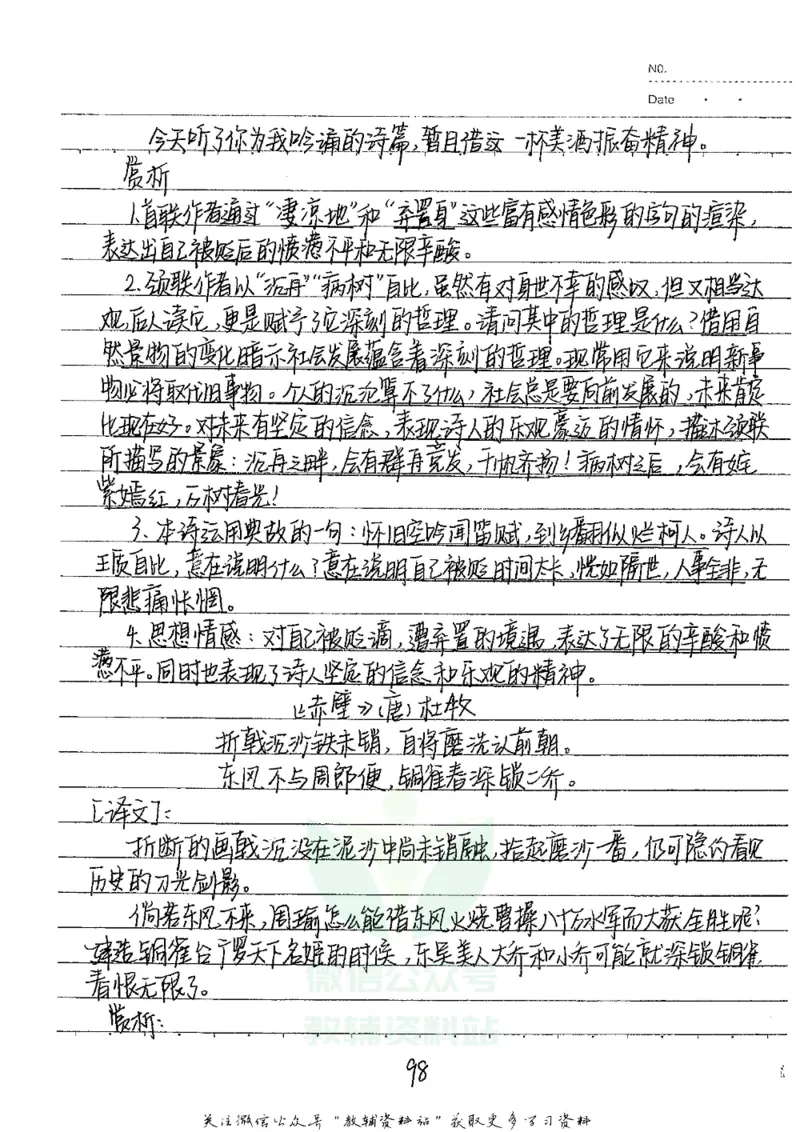 NO.
Date
今天听了你为我吟诵的诗篇,暂且借这一杯美酒振奋精神。
赏析
1.首联作者通过“凄凉地”和“弃置身”这些富有感情色彩的字句的渲染,
表达出自己被贬后的愤懑不平和无限辛酸。
2.颈联作者以“沉舟”“病树”自比,虽然有对身世不幸的感叹,但又相当达
观,后人读它,更是赋予了它深刻的哲理。请问其中的哲理是什么?借用自
然景物的变化暗示社会发展蕴含着深刻的哲理。现常用它来说明新事
物必将取代旧事物。个人的沉沦算不了什么,社会总是要向前发展的,未来肯定
比现在好。对未来有坚定的信念,表现诗人的乐观豪迈的情怀,描述颈联
所描写的景象:沉舟之畔,会有群舟竞发,千帆齐扬!病树之后,会有姹
紫嫣红,万树春光!
3.本诗运用典故的一句:怀旧空吟闻笛赋,到乡翻似烂柯人。诗人以
王质自比,意在说明什么?意在说明自己被贬时间太长,恍如隔世,人事全非,无
限悲痛怅惘。
4.思想情感:对自己被贬谪,遭弃置的境遇,表达了无限的辛酸和愤
懑不平。同时也表现了诗人坚定的信念和乐观的精神。
《赤壁》(唐)杜牧
折戟沉沙铁未销,自将磨洗认前朝。
东风不与周郎便,铜雀春深锁二乔。
[译文]:
折断的画戟沉没在泥沙中尚未销融,拾起磨沙一番,仍可隐约看见
历史的刀光剑影。
倘若东风不来,周瑜怎么能借东风火烧曹操八十万水军而大获全胜呢?
建造铜雀台广罗天下名姬的时候,东吴美人大乔和小乔可能就深锁铜雀
春恨无限了。
赏析:
微信公众号
教辅资料站
98
关注微信公众号“教辅资料站”获取更多学习资料